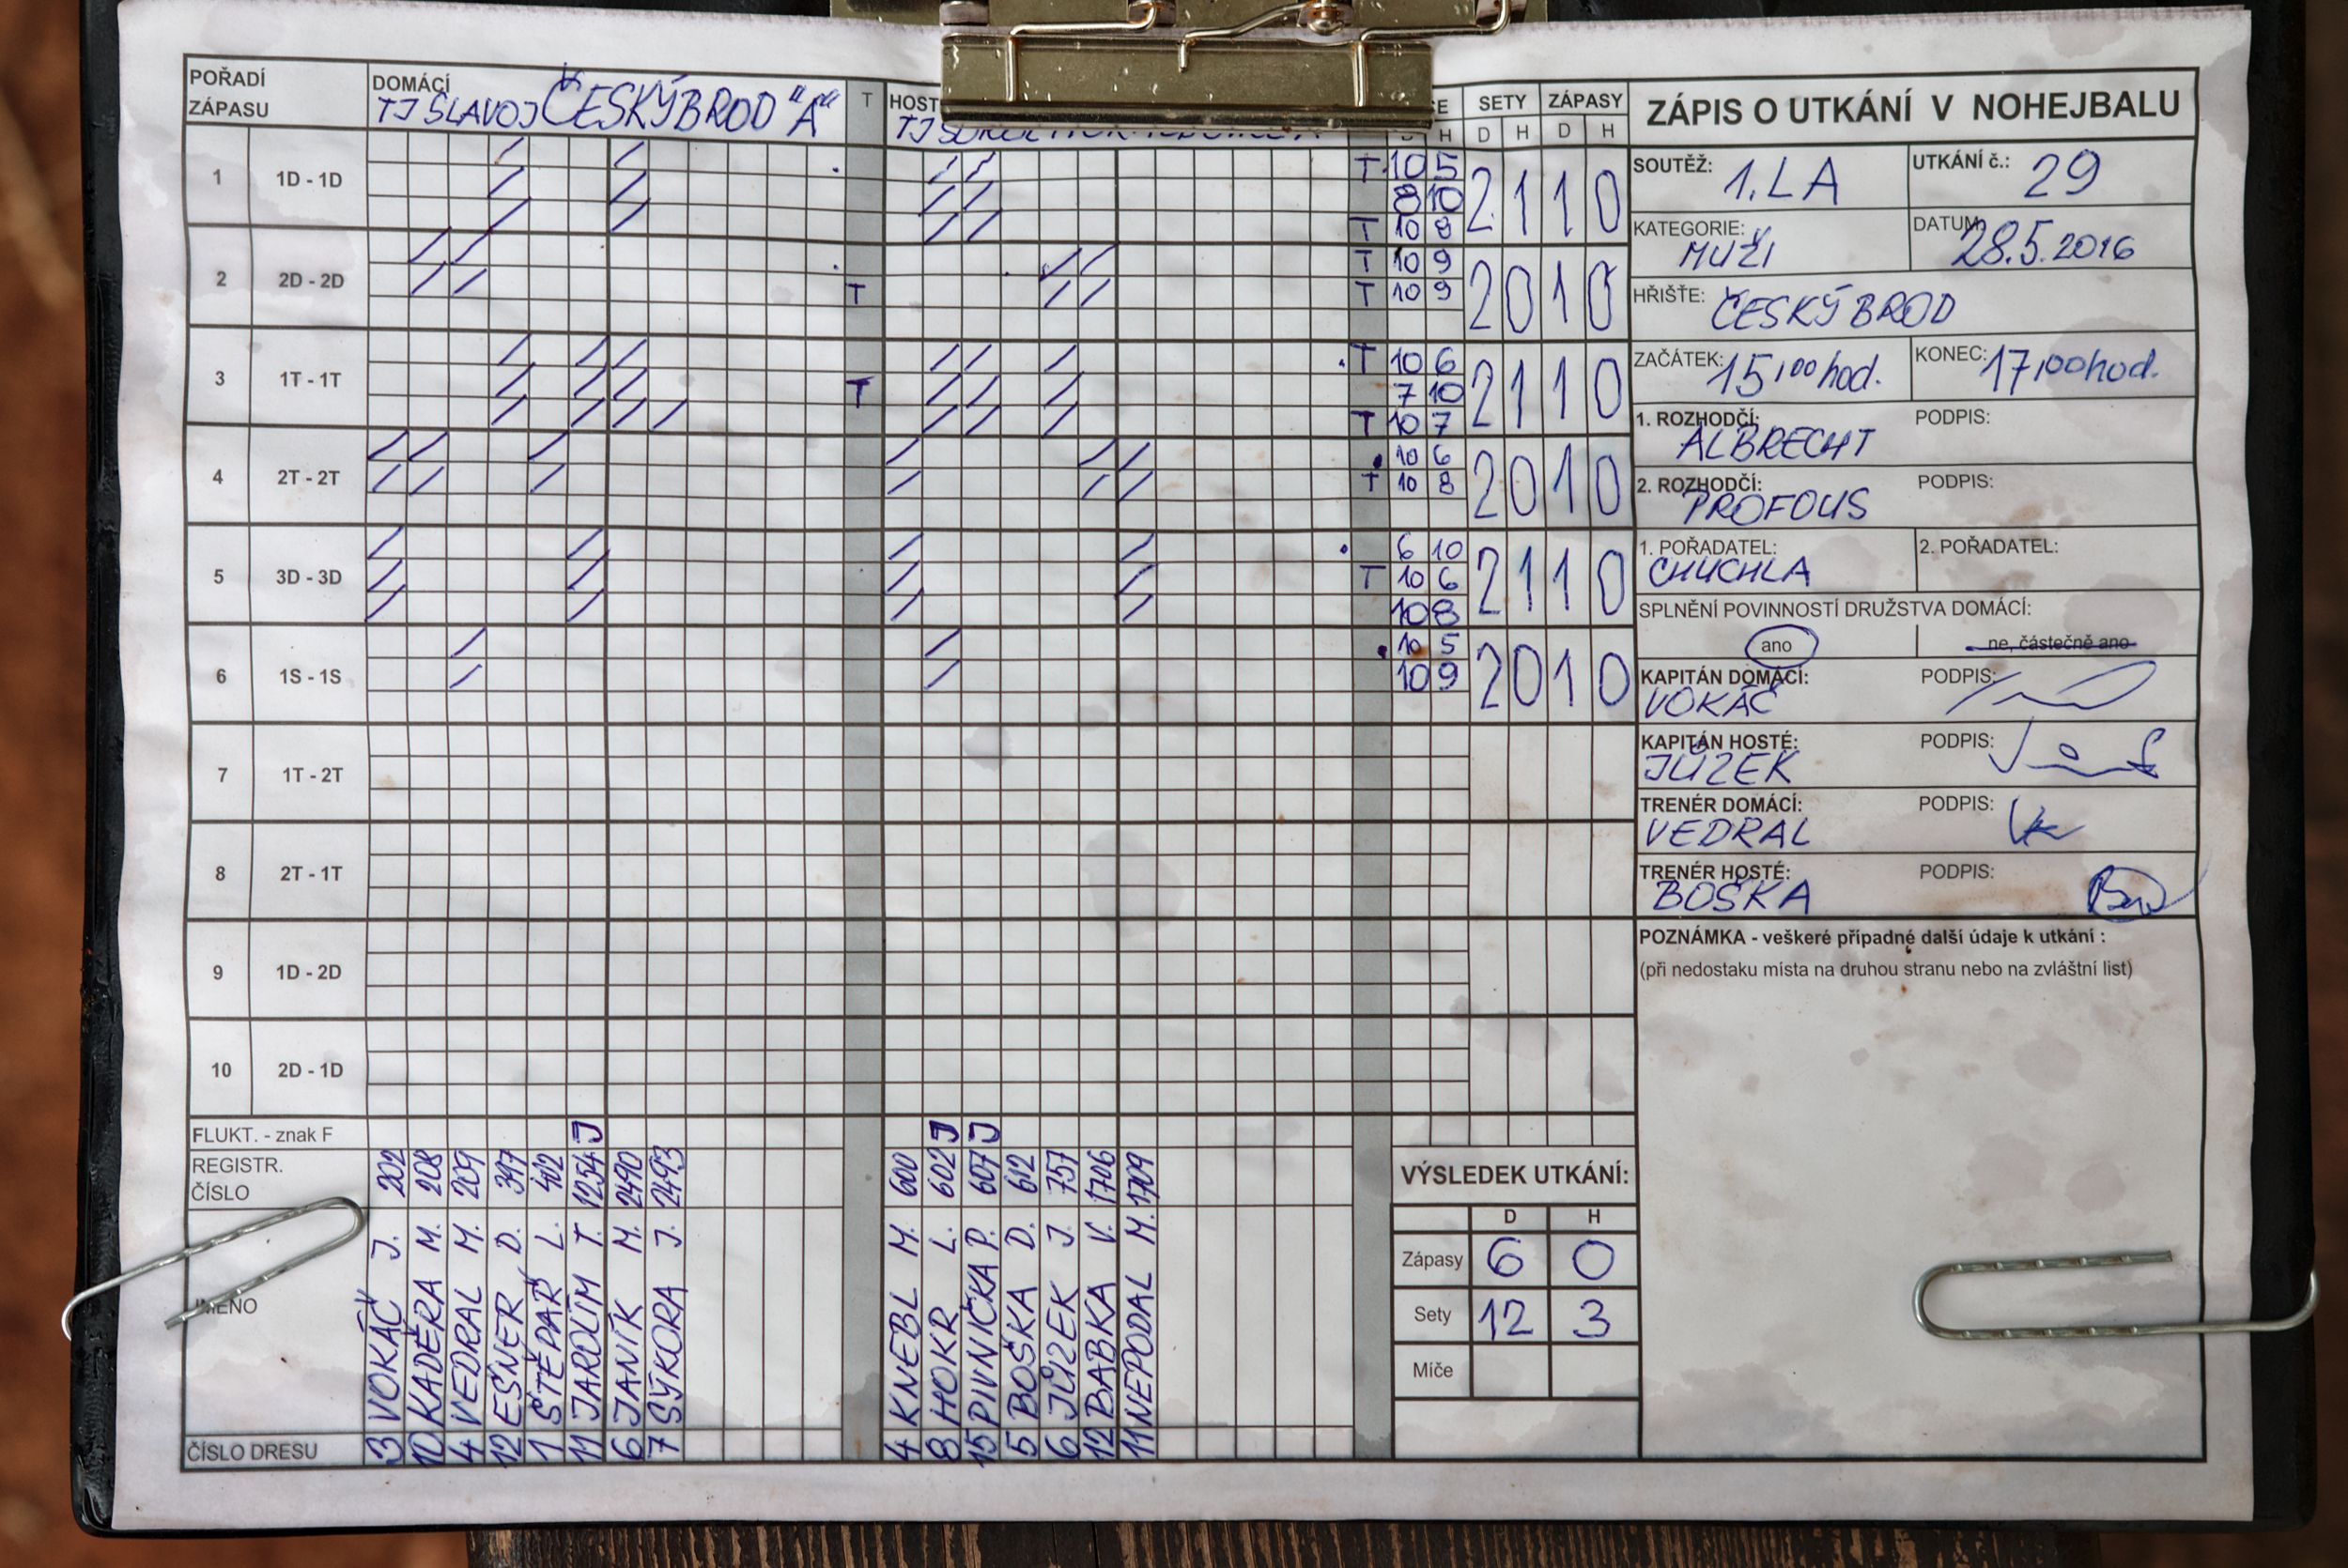 POŘADÍ ZÁPASU
DOMÁCÍ
TJ SLAVOJ ČESKÝ BROD "A"
T
HOST
TJ
CE
SETY ZÁPASY
H D H D H
ZÁPIS O UTKÁNÍ V NOHEJBALU
SOUTĚŽ: 1.LA
UTKÁNÍ č.: 29
KATEGORIE: MUŽI
DATUM: 28.5.2016
HŘIŠTE: ČESKÝ BROD
ZAČÁTEK: 15,00 hod.
KONEC: 17,00 hod.
1. ROZHODČÍ: ALBRECHT
PODPIS:
2. ROZHODČÍ: PROFOUS
PODPIS:
1. POŘADATEL: CHUCHLA
2. POŘADATEL:
SPLNĚNÍ POVINNOSTÍ DRUŽSTVA DOMÁCÍ:
ano
ne, částečně ano
KAPITÁN DOMÁCÍ: VOKÁČ
PODPIS:
KAPITÁN HOSTÉ: JŮZEK
PODPIS:
TRENÉR DOMÁCÍ: VEDRAL
PODPIS:
TRENÉR HOSTÉ: BOŠKA
PODPIS:
POZNÁMKA - veškeré případné další údaje k utkání :
(při nedostaku místa na druhou stranu nebo na zvláštní list)
1 1D - 1D T 10 5 2 1 1 0
8 10
T 10 8
2 2D - 2D T 10 9 2 0 1 0
T T 10 9
3 1T - 1T T 10 6 2 1 1 0
T 7 10
T 10 7
4 2T - 2T 10 6 2 0 1 0
T 10 8
5 3D - 3D 6 10 2 1 1 0
T 10 6
10 8
6 1S - 1S 10 5 2 0 1 0
10 9
7 1T - 2T
8 2T - 1T
9 1D - 2D
10 2D - 1D
FLUKT. - znak F
J J J
REGISTR. ČÍSLO
JMÉNO
ČÍSLO DRESU
3 VOKÁČ J. 202
10 KADĚRA M. 208
4 VEDRAL M. 209
12 EŠNER D. 397
1 ŠTĚPAŘ L. 412
11 JAROLÍM T. 1254
6 JANÍK M. 2490
7 SÝKORA J. 2493
4 KNEBL M. 600
8 HOKR L. 602
15 PIVNIČKA P. 607
5 BOŠKA D. 612
6 JŮZEK J. 757
12 BABKA V. 1706
11 NEPODAL M. 1709
VÝSLEDEK UTKÁNÍ:
D H
Zápasy 6 0
Sety 12 3
Míče